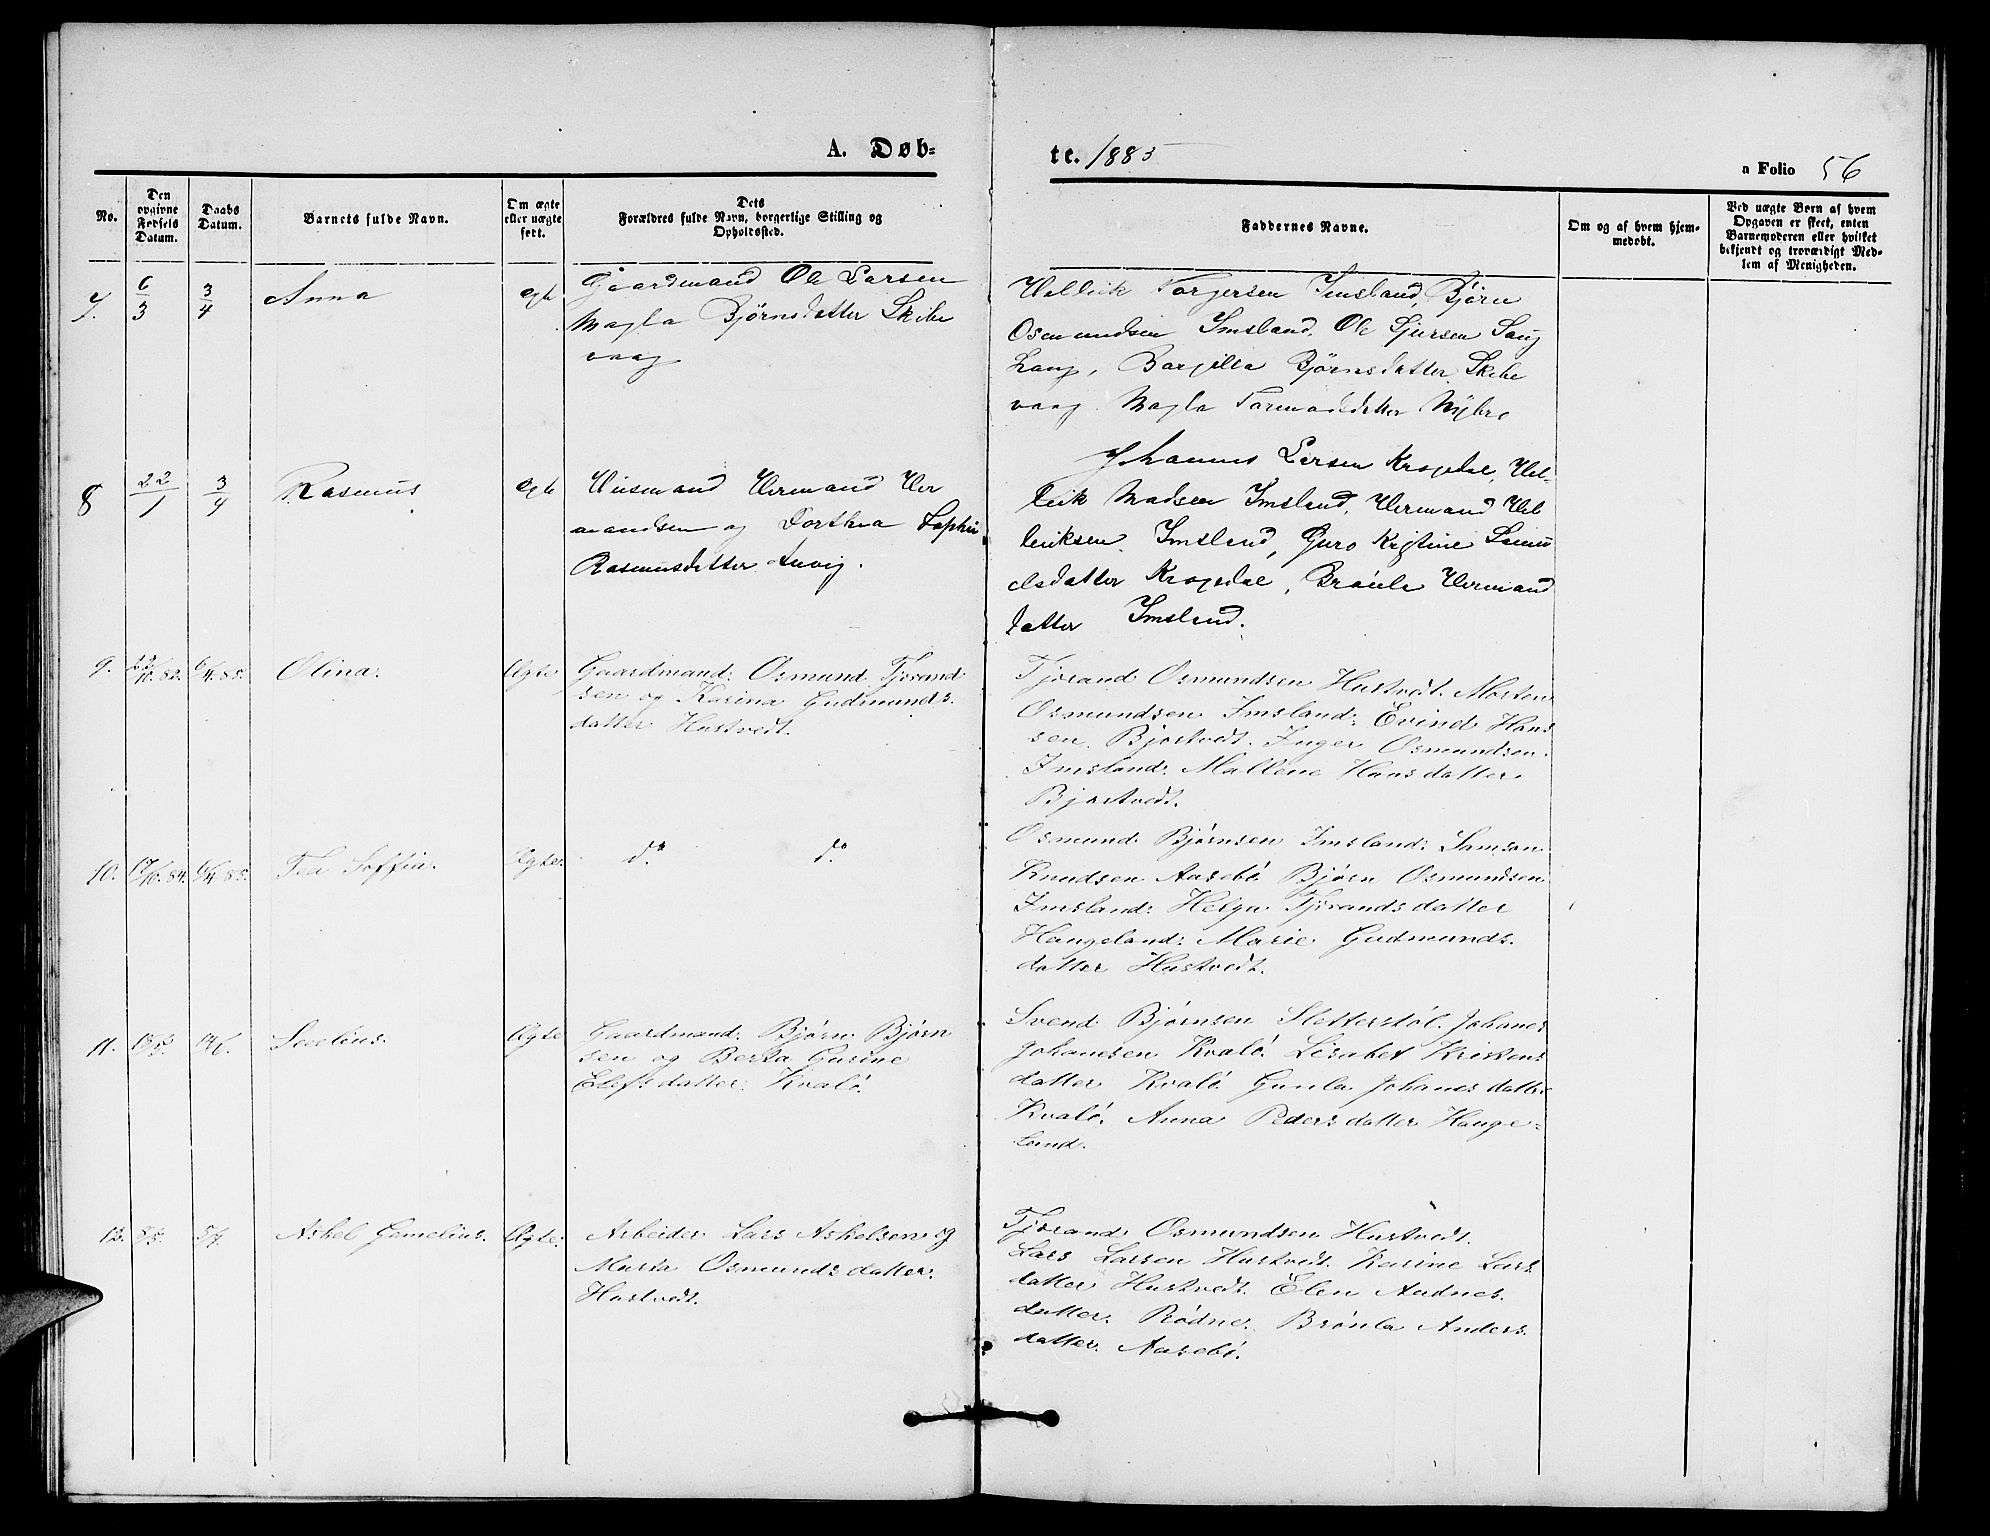 A. Døb-
te. 1885
a Folio 56
No.
Den opgivne Fødsels Datum.
Daabs Datum.
Barnets fulde Navn.
Om ægte eller uægte født.
Dets Forældres fulde Navn, borgerlige Stilling og Opholdssted.
Faddernes Navne.
Om og af hvem hjemmedøbt.
Ved uægte Børn af hvem Opgaven er skeet, enten Barnemoderen eller hvilket bekjendt og troværdigt Medlem af Menigheden.
7. 6/3 3/4 Anna
Gaardmand Ole Larsen
Magla Bjørnsdatter Skibe
vaag
Torgersen Imsland, Bjørn
Osemundsen Imsland, Ole Sjursen
Bjørnsdatter Skibe
vaag. Magla
8 22/1 3/4 Rasmus
Husmand Hermand Her
mandsen og Dorthea Sophie
Rasmusdatter Anvig.
Johannes Larsen Kropdal,
Madsen Imsland, Hermand
leriksen Imsland, Guro Kristine
elsdatter Kropdal, Hermand
datter Imsland.
9. 6/4.85. Olina. Ægte
Gaardmand: Osmund Tjørand
sen og Karina Gudmunds.
datter Hustvedt.
Tjørand Osmundsen Hustvedt. Morten
Osmundsen Imsland: Evind Hans
sen. Bjostvedt. Inger Osmundsen.
Imsland: Mallene Hansdatter.
Bjostvedt.
10. 17/6.84. 6/4.85. Tea Soffie. Ægte.
do do
Osmund Bjørnsen Imsland: Samson
Knudsen Aasebö Bjørn Osmundsen
Imsland: Helga Tjørandsdatter
Haugeland: Marie Gudmunds.
datter Hustvedt.
11. Ægte
Gaardmand: Bjørn Bjørn
sen og Berta Gurine
Elefsdatter: Kvalö.
Svend Bjørnsen Sletterstöl. Johanes
Johansen Kvalö. Lisabet
datter Kvalö Gunla Johanesdatter
Kvalö. Anna Pedersdatter Hauge-
land.
12. 8/5. 5/7. Askel Gemelius. Ægte.
Arbeider Lars Askelsen og
Marta Osmundsdatter.
Hustvedt.
Tjørand Osmundsen Hustvedt.
Lars Larsen Hustvedt. Karine Lars
datter Hustvedt. Elen Audnes.
datter. Rödne. Brönla Anders.
datter. Aasebö.